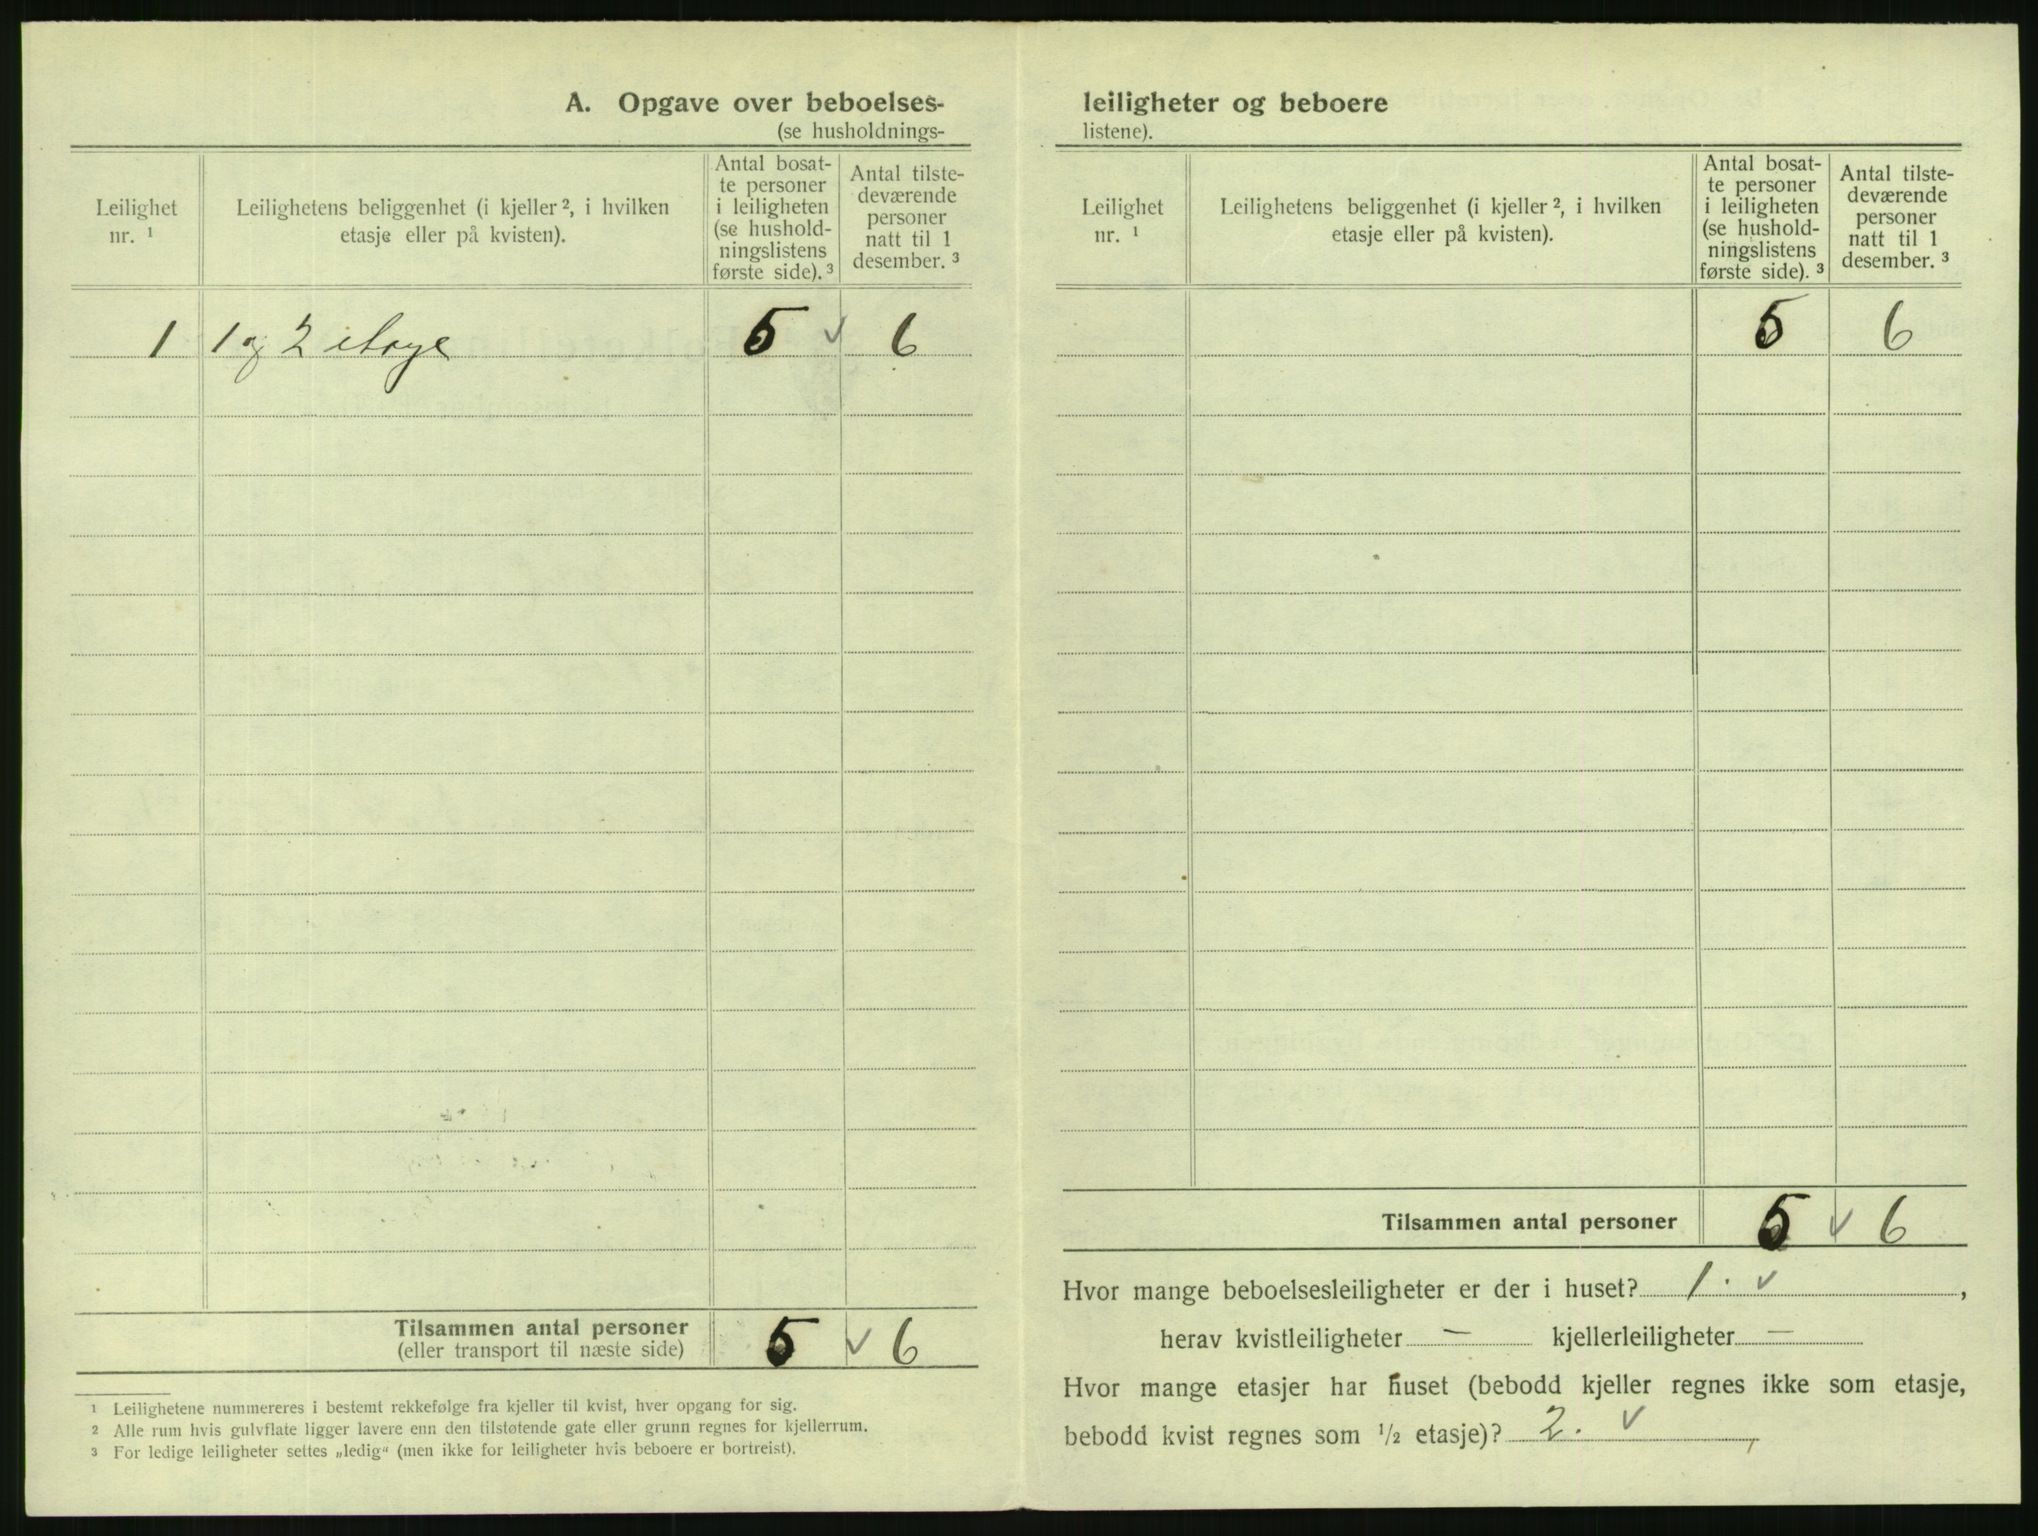 A. Opgave over beboelses-
(se husholdnings-
Leilighet nr. ¹
Leilighetens beliggenhet (i kjeller ², i hvilken
etasje eller på kvisten).
Antal bosat-
te personer
i leiligheten
(se hushold-
ningslistens
første side). ³
Antal tilste-
deværende
personer
natt til 1
desember. ³
1 1 og 2 etage 5 √ 6
Tilsammen antal personer 5 √ 6
(eller transport til næste side)
¹ Leilighetene nummereres i bestemt rekkefølge fra kjeller til kvist, hver opgang for sig.
² Alle rum hvis gulvflate ligger lavere enn den tilstøtende gate eller grunn regnes for kjellerrum.
³ For ledige leiligheter settes „ledig“ (men ikke for leiligheter hvis beboere er bortreist).
leiligheter og beboere
listene).
Leilighet nr. ¹
Leilighetens beliggenhet (i kjeller ², i hvilken
etasje eller på kvisten).
Antal bosat-
te personer
i leiligheten
(se hushold-
ningslistens
første side). ³
Antal tilste-
deværende
personer
natt til 1
desember. ³
5 6
Tilsammen antal personer 5 √ 6
Hvor mange beboelsesleiligheter er der i huset? 1. √ ,
herav kvistleiligheter — kjellerleiligheter —
Hvor mange etasjer har huset (bebodd kjeller regnes ikke som etasje,
bebodd kvist regnes som ½ etasje)? 2. √